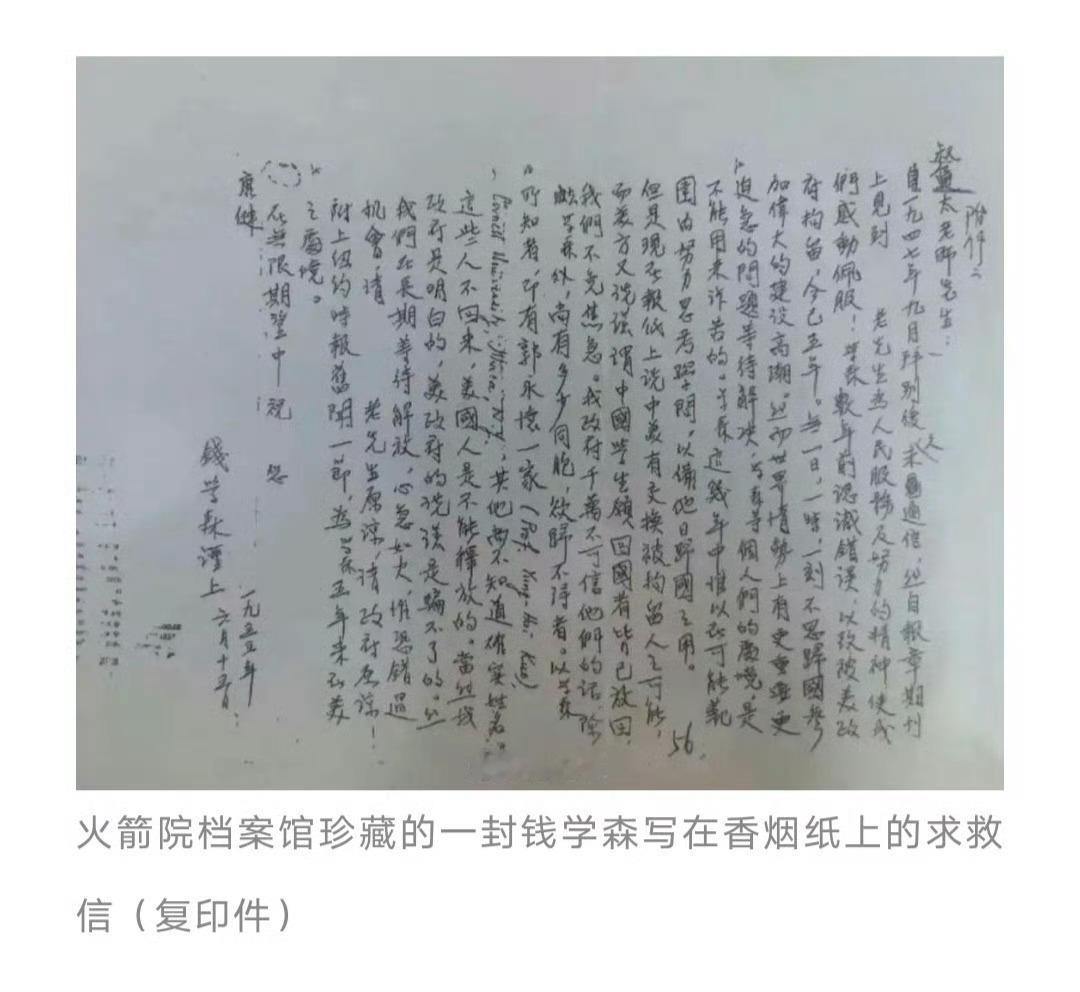 附件二
叔通太老師先生：
自一九四七年九月拜別後未通信，然自報章期刊
上見到 老先生為人民服務及努力的精神，使我
們感動佩服！學森數年前認識錯誤，以致被美政
府拘留，今已五年。無一日，一時，一刻不思歸國參
加偉大的建設高潮。然而世界情勢上有更重要更
迫急的問題等待解決，學森等個人們的處境，是
不能用來訴苦的。學森這幾年中惟以在可能範
圍內努力思考學問，以備他日歸國之用。
但是現在報紙上說中美有交換被拘留人之可能，
而美方又說謊謂中國學生願回國者皆已放回，
我們不免焦急。我政府千萬不可信他們的話，除
學森外，尚有多少同胞，欲歸不得者。以學森
所知者，即有郭永懷一家（Prof. Yung-Huai Kuo,
Cornell University, Ithaca, N.Y.），其他尚不知道確實姓名。
這些人不回來，美國人是不能釋放的。當然我
政府是明白的，美政府的說謊是騙不了的。然
我們在長期等待解放，心急如火，惟恐錯過
機會，請 老先生原諒，請政府原諒！
附上紐約時報舊聞一節，為學森五年來在美
之處境。
在無限期望中祝 您
康健
錢學森謹上
一九五五年
六月十五日
56.
火箭院档案馆珍藏的一封钱学森写在香烟纸上的求救
信（复印件）